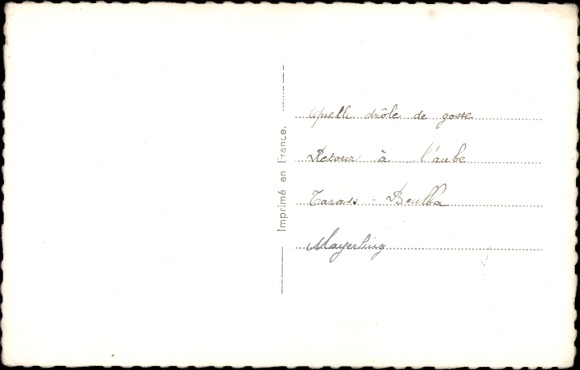 Imprimé en France.
Quelle drôle de gosse
Retour à l'aube
Tarass - Boulba
Mayerling